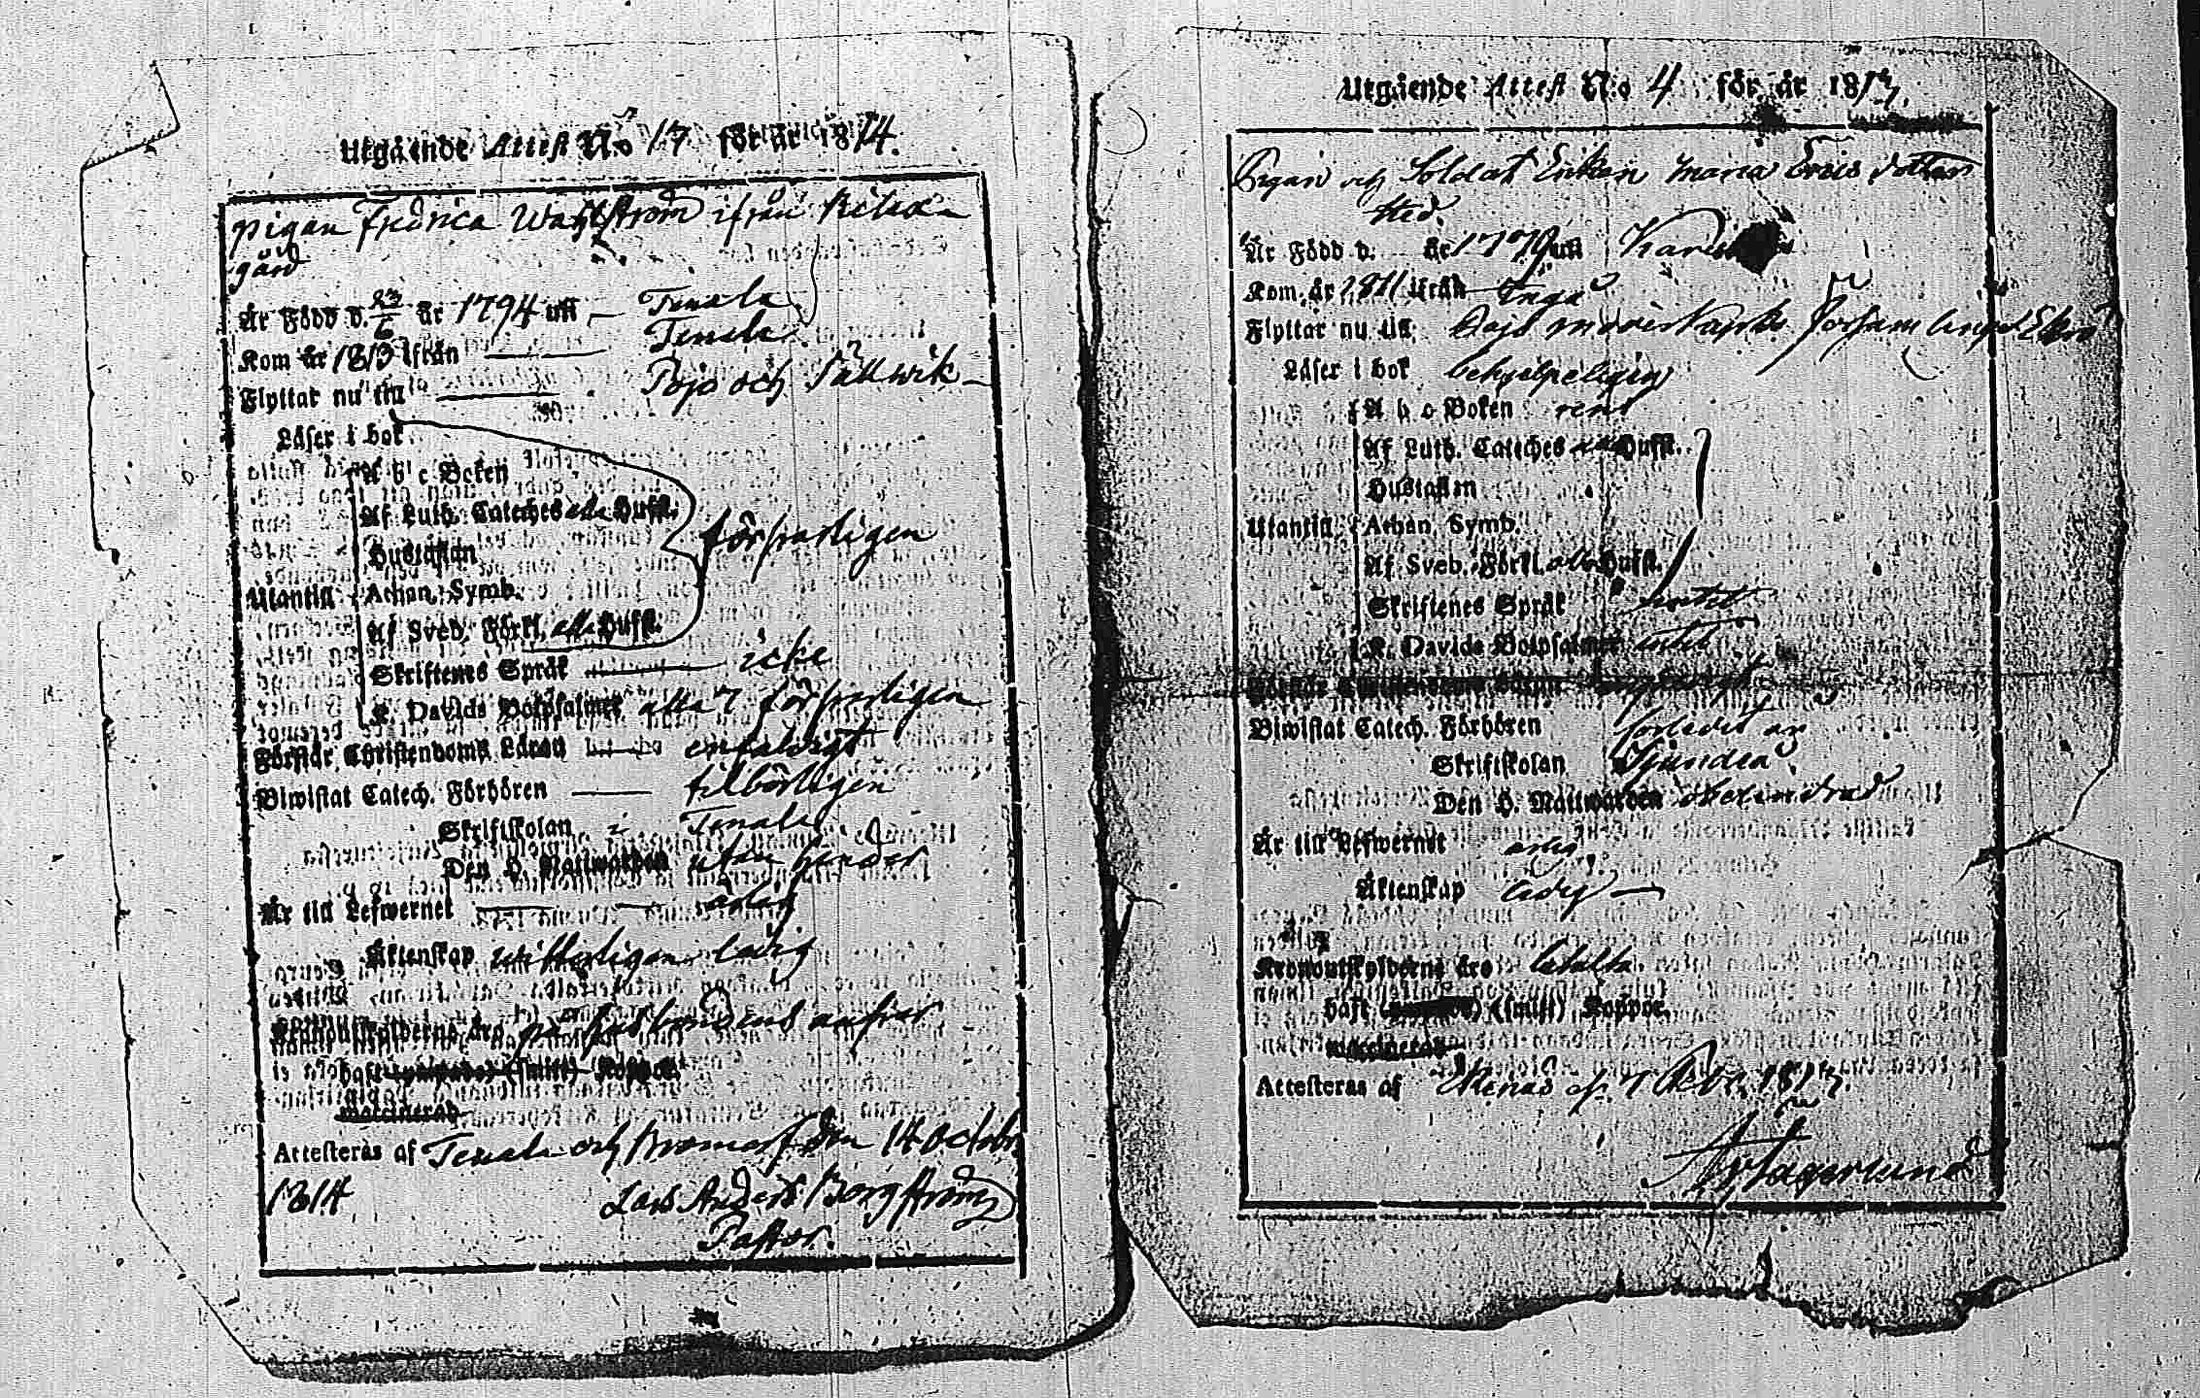 Utgående Attest N:o 17 för år 1814.
pigan Fredrica Wahlström ifrån
gård
Är Född d. 23/6 år 1794 uti Tenala
Kom år 1813 ifrån Tenala
Flyttar nu till Pojo och Sällwik
Läser i bok
A b c Boken
Af Luth. Cateches alla Hufst.
Hustaflan
förswarligen
Utantill Athan. Symb.
Af Sveb. Förkl. alla Hufst.
Skriftenes Språk icke
K. Davids Botpsalmer alla 7 förswarligen
Förstår Christendoms Läran enfaldigt
Biwistat Catech. Förhören tilbörligen
Skriftskolan i Tenala
Den H. Nattwarden utan hinder
Är till Lefwernet ärlig
Äktenskap witterligen ledig
Kronoutskylderne äro på husbondens answar
haft (smitt) Koppor
vaccinerad
Attesteras af Tenala och Bromarf den 14 Octobr.
1814 Lars Anders Borgström
Pastor.
Utgående Attest N:o 4 för år 1813.
Pigan och Soldat Enkan Maria Ericsdotter
Är Född d. år 1779 uti
Kom år 1811 ifrån Ingå
Flyttar nu till Pojo församling
Läser i bok behjelpeligen
A b c Boken rent
Af Luth. Cateches Hufst.
Hustaflan
Utantill Athan. Symb.
Af Sveb. Förkl. alla Hufst.
Skriftenes Språk
K. Davids Botpsalmer
Förstår Christendoms Läran
Biwistat Catech. Förhören förledit år
Skriftskolan Sjundeå
Den H. Nattwarden obehindrad
Är till Lefwernet ärlig
Äktenskap ledig
Kronoutskylderne äro betalta
haft (smitt) Koppor.
vaccinerad
Attesteras af Ekenäs 1813.
Lagerlund